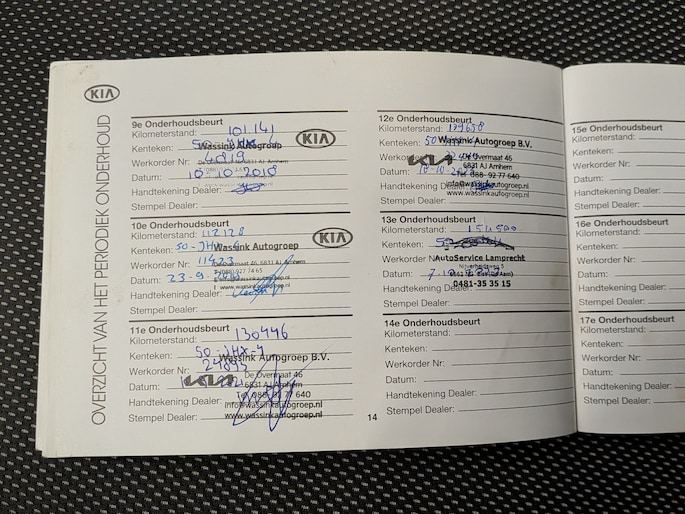 KIA
OVERZICHT VAN HET PERIODIEK ONDERHOUD
9e Onderhoudsbeurt
Kilometerstand: 101.141
Kenteken:
Wassink Autogroep
KIA
Werkorder Nr: 40819
6841 AJ Arnhem
Datum: 10-10-2018
Handtekening Dealer:
Stempel Dealer:
10e Onderhoudsbeurt
Kilometerstand: 112128
KIA
Kenteken: 50-JHX-4
Wassink Autogroep
Werkorder Nr: 11423
6831 AJ Arnhem
Datum: 23-9-
Handtekening Dealer:
www.wassinkautogroep.nl
Stempel Dealer:
11e Onderhoudsbeurt
Kilometerstand: 130446
Kenteken: 50-JHX-4
Wassink Autogroep B.V.
Werkorder Nr: 24895
De Overmaat 46
KIA
Datum:
6831 AJ Arnhem
Handtekening Dealer:
Tel. 088- 92 77 640
info@wassinkautogroep.nl
Stempel Dealer:
www.wassinkautogroep.nl
12e Onderhoudsbeurt
Kilometerstand: 139658
Kenteken: 50
Wassink Autogroep B.V.
Werkorder Nr:
KIA
De Overmaat 46
6831 AJ Arnhem
Datum:
Tel. 088- 92 77 640
Handtekening Dealer:
info@wassinkautogroep.nl
Stempel Dealer:
www.wassinkautogroep.nl
13e Onderhoudsbeurt
Kilometerstand: 151500
Kenteken:
Werkorder Nr:
AutoService Lamprecht
Datum:
Handtekening Dealer:
0481-35 35 15
Stempel Dealer:
14e Onderhoudsbeurt
Kilometerstand:
Kenteken:
Werkorder Nr:
Datum:
Handtekening Dealer:
Stempel Dealer:
14
15e Onderhoudsbeurt
Kilometerstand:
Kenteken:
Werkorder Nr:
Datum:
Handtekening Dealer:
Stempel Dealer:
16e Onderhoudsbeurt
Kilometerstand:
Kenteken:
Werkorder Nr:
Datum:
Handtekening Dealer:
Stempel Dealer:
17e Onderhoudsbeurt
Kilometerstand:
Kenteken:
Werkorder Nr:
Datum:
Handtekening Dealer:
Stempel Dealer: